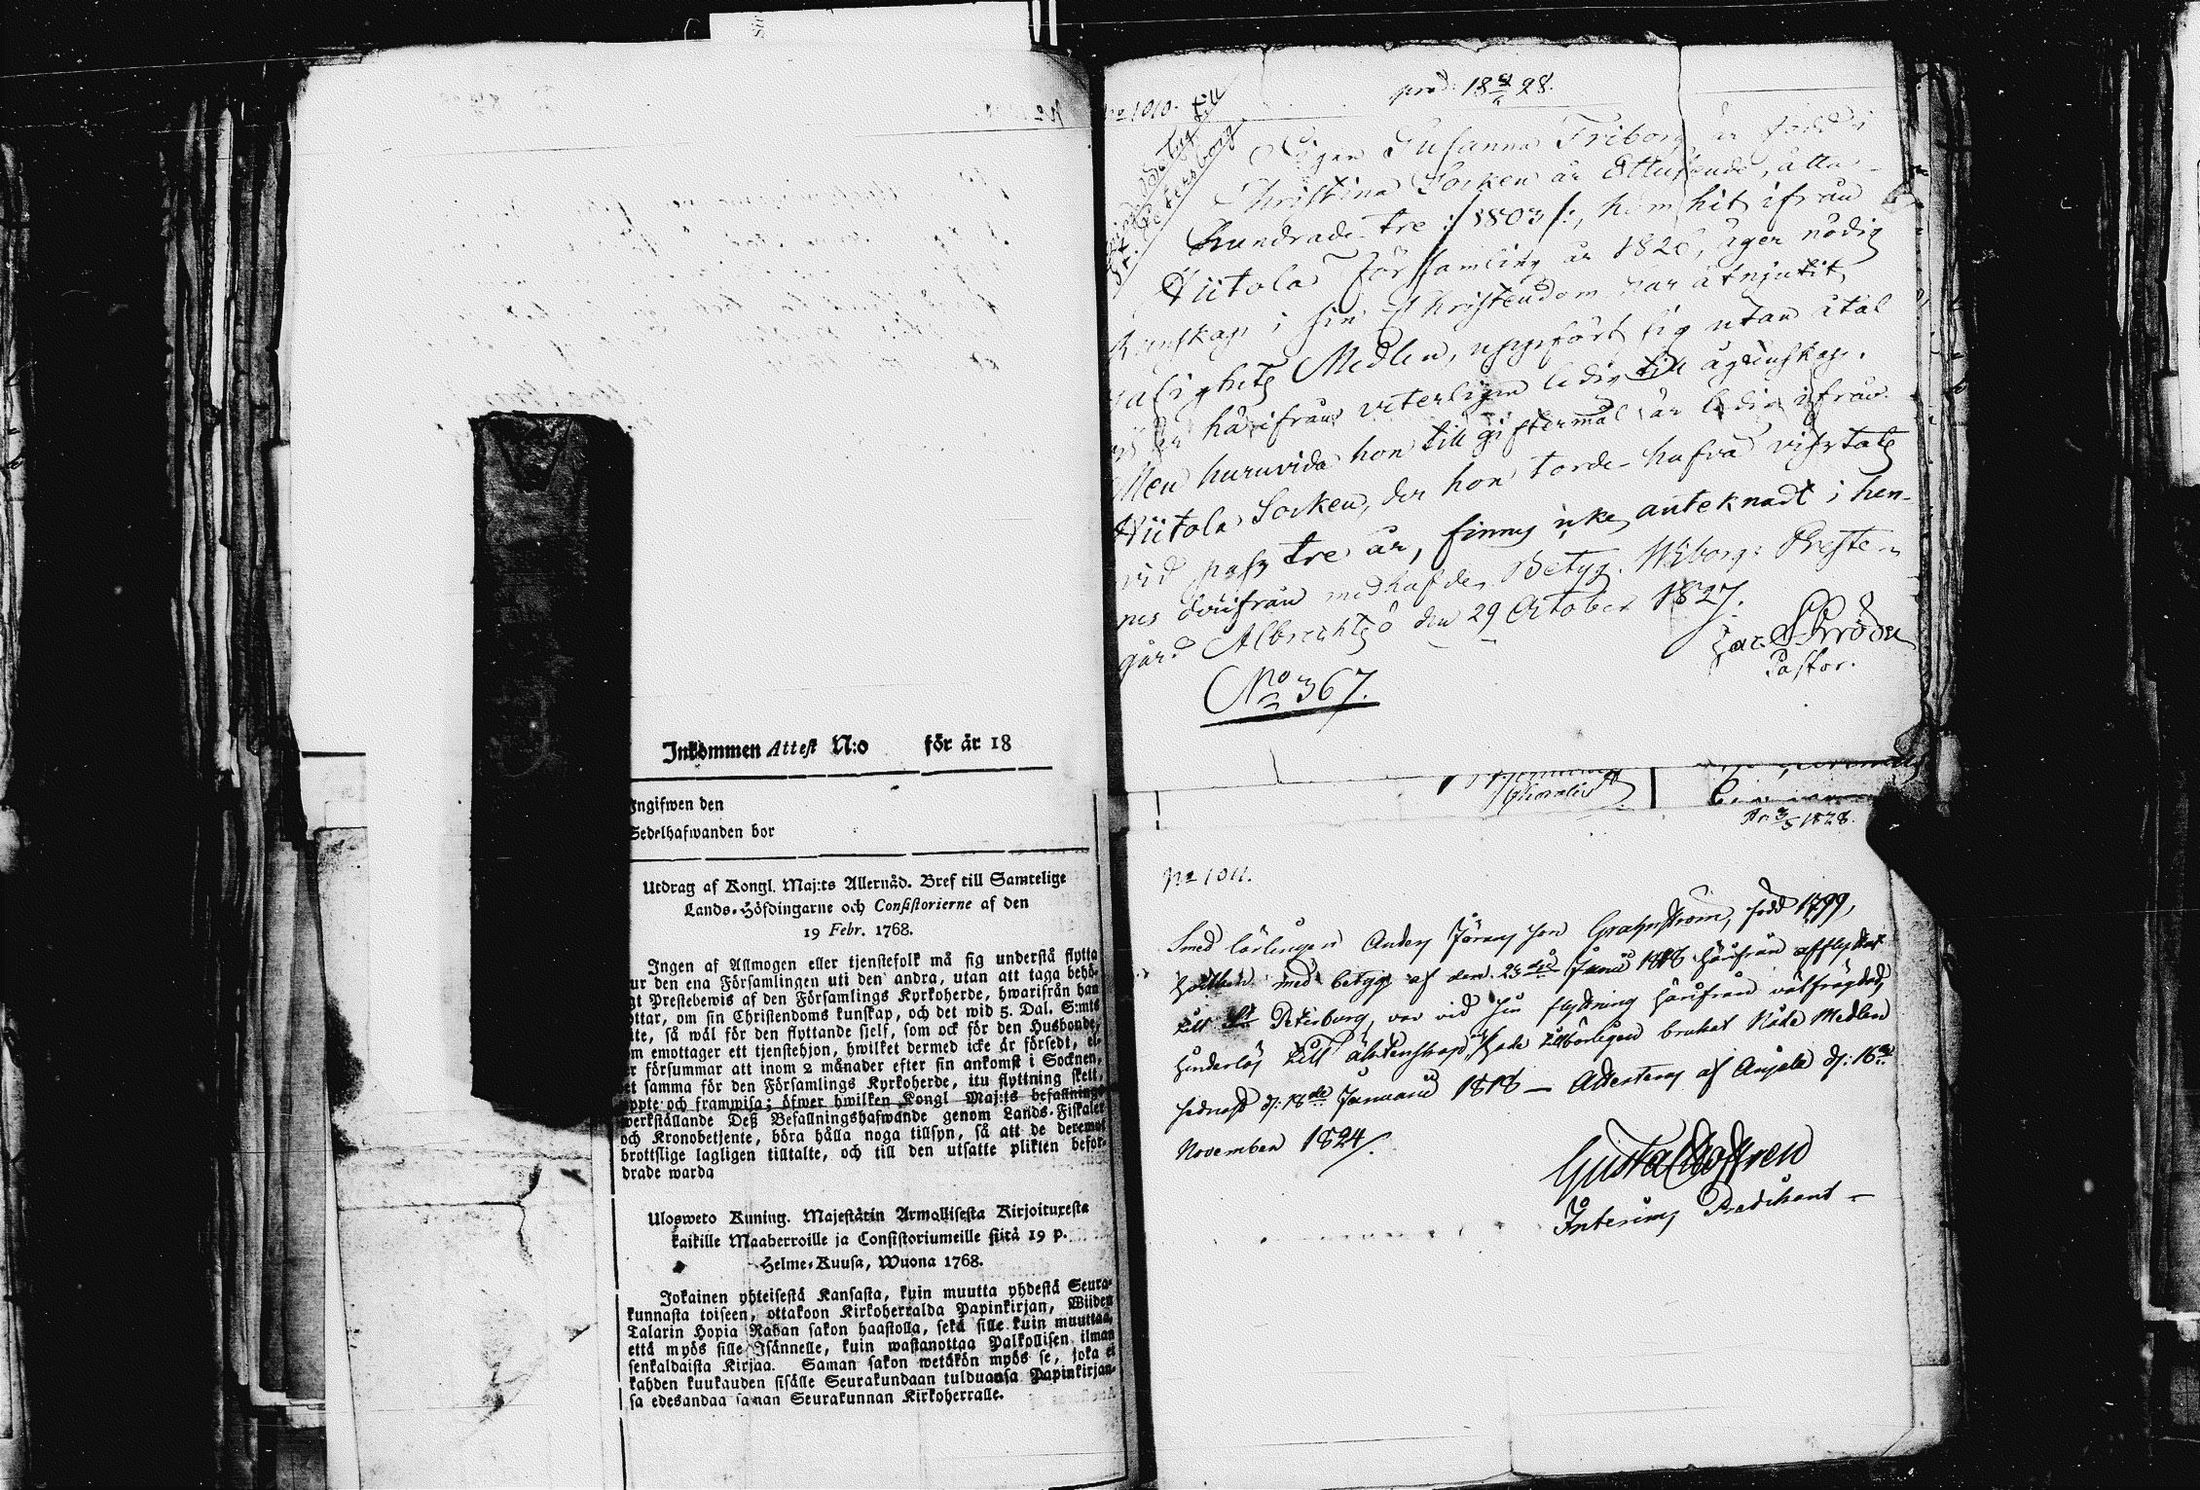 Inkommen Attest N:o för år 18
Ingifwen den
Sedelhafwanden bor
Utdrag af Kongl. Maj:ts Allernåd. Bref till Samtelige
Lands-Höfdingarne och Consistorierne af den
19 Febr. 1768.
Ingen af Allmogen eller tjenstefolk må sig understå flytta
ur den ena Församlingen uti den andra, utan att taga behö-
Prestebewis af den Församlings Kyrkoherde, hwarifrån han
om sin Christendoms kunskap, och det wid 5. Dal. S:mts
så wäl för den flyttande sielf, som ock för den Husbonde,
emottager ett tjenstehjon, hwilket dermed icke är försedt, el-
försummar att inom 2 månader efter sin ankomst i Socknen,
samma för den Församlings Kyrkoherde, itu flyttning skett,
och framwisa; öfwer hwilken Kongl Maj:ts befallning
werkställande Deß Befallningshafwande genom Lands-Fiskaler
och Kronobetjente, böra hålla noga tillsyn, så att de deremot
brottslige lagligen tilltalte, och till den utsatte plikten befor-
drade warda
Ulosweto Kuning. Majestätin Armollisesta Kirjoituxesta
kaikille Maaherroille ja Consistoriumeille siitä 19 p.
Helme-Kuusa, Wuona 1768.
Jokainen yhteisestä Kansasta, kuin muutta yhdestä Seura-
kunnasta toiseen, ottakoon Kirkoherralda Papinkirjan, Wiiden
Talarin Hopia Rahan sakon haastolla, sekä sille kuin muuttaa,
että myös sille Isännelle, kuin wastanottaa Palkollisen ilman
senkaldaista Kirjaa. Saman sakon wetäkön myös se, joka ei
kahden kuukauden sisälle Seurakundaan tulduansa Papinkirjan-
sa edesandaa saman Seurakunnan Kirkoherralle.
No 1010.
prod. 18 28.
Betyg till
St. Petersborg
Pigan Susanna Friborg är född i
Christina Socken år Ettusende, åtta-
hundrade tre :/1803/:, kom hit ifrån
Hiitola Församling år 1826, äger nödig
Kunskap i sin Christendom har åtnjutit
Salighets Medlen, uppfört sig utan åtal
härifrån veterligen ledig till ägtenskap.
Men huruvida hon till giftermål är ledig ifrån
Hiitola Socken, der hon torde hafva vistats
vid pass tre år, finnes icke anteknadt i hen-
nes därifrån medhafde Betyg. Wiborgs Preste-
gård Albrechtsö den 29 October 1827.
Jac. Schröder
Pastor.
No 367.
Pr. 3/5 1828.
No 1011.
Smed lärlingen Anders Jörans son Grahnström, född 1799,
med betyg af den 23 Junii 1818 härifrån afflyttat
till St Petersburg, var vid sin flyttning härifrån välfrägdad,
hinderlös till äktenskap, hade tillbörligen brukat Nåde Medlen
sednast d: 18de Januarii 1818 — Attesteras af Anjala d: 16de
November 1824.
Gustaf
Interims Predikant —